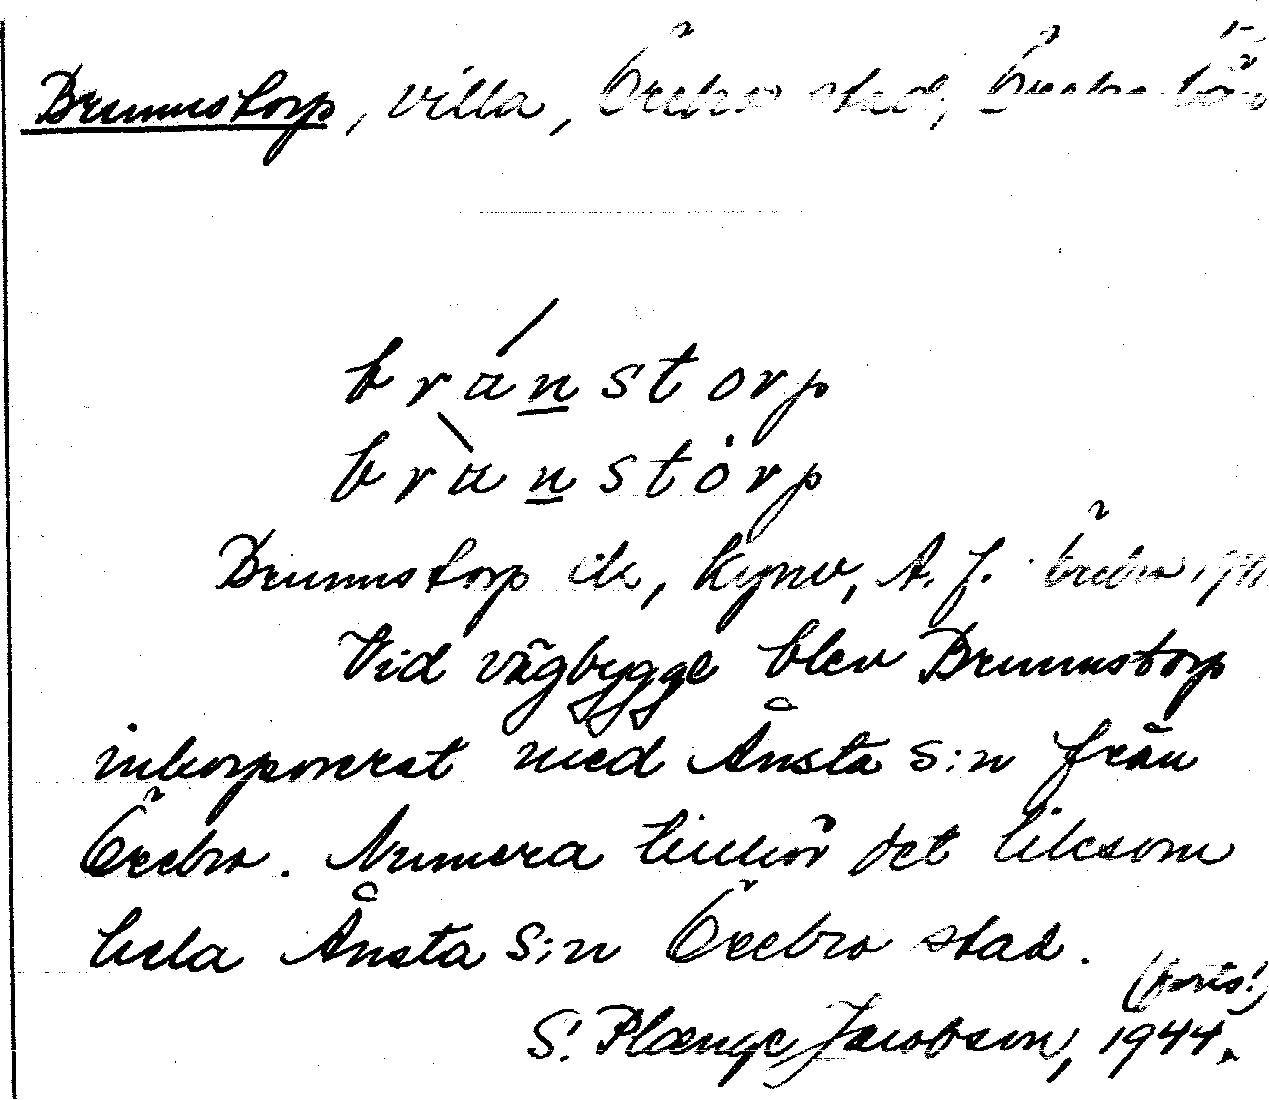 Brunnstorp, villa, Örebro stad, Örebro län
bra̍n̲storp
brànstȯrp
Brunnstorp ik, kynv, A. f. Örebro
Vid vägbygge blev Brunnstorp
inkorporerat med Ånsta s:n från
Örebro. Numera tillhör det liksom
hela Ånsta s:n Örebro stad.
(forts!)
S. Plænge Jacobson, 1944.